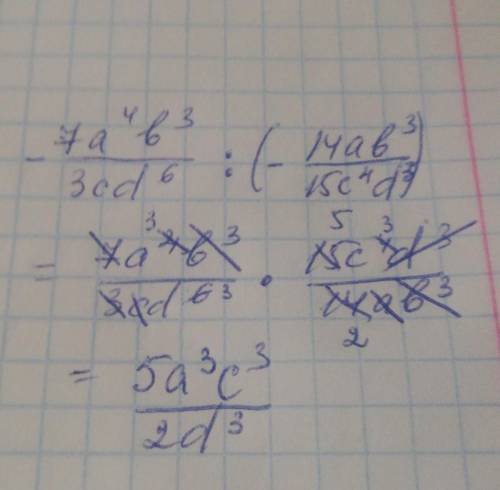 - 7a⁴b³ / 3cd⁶ : (- 14ab³ / 15c⁴d³)
= 7a³ ⁴b³ / 3cd⁶ ³ · 5 15c³ ⁴d³ / 14ab³ 2
= 5a³c³ / 2d³